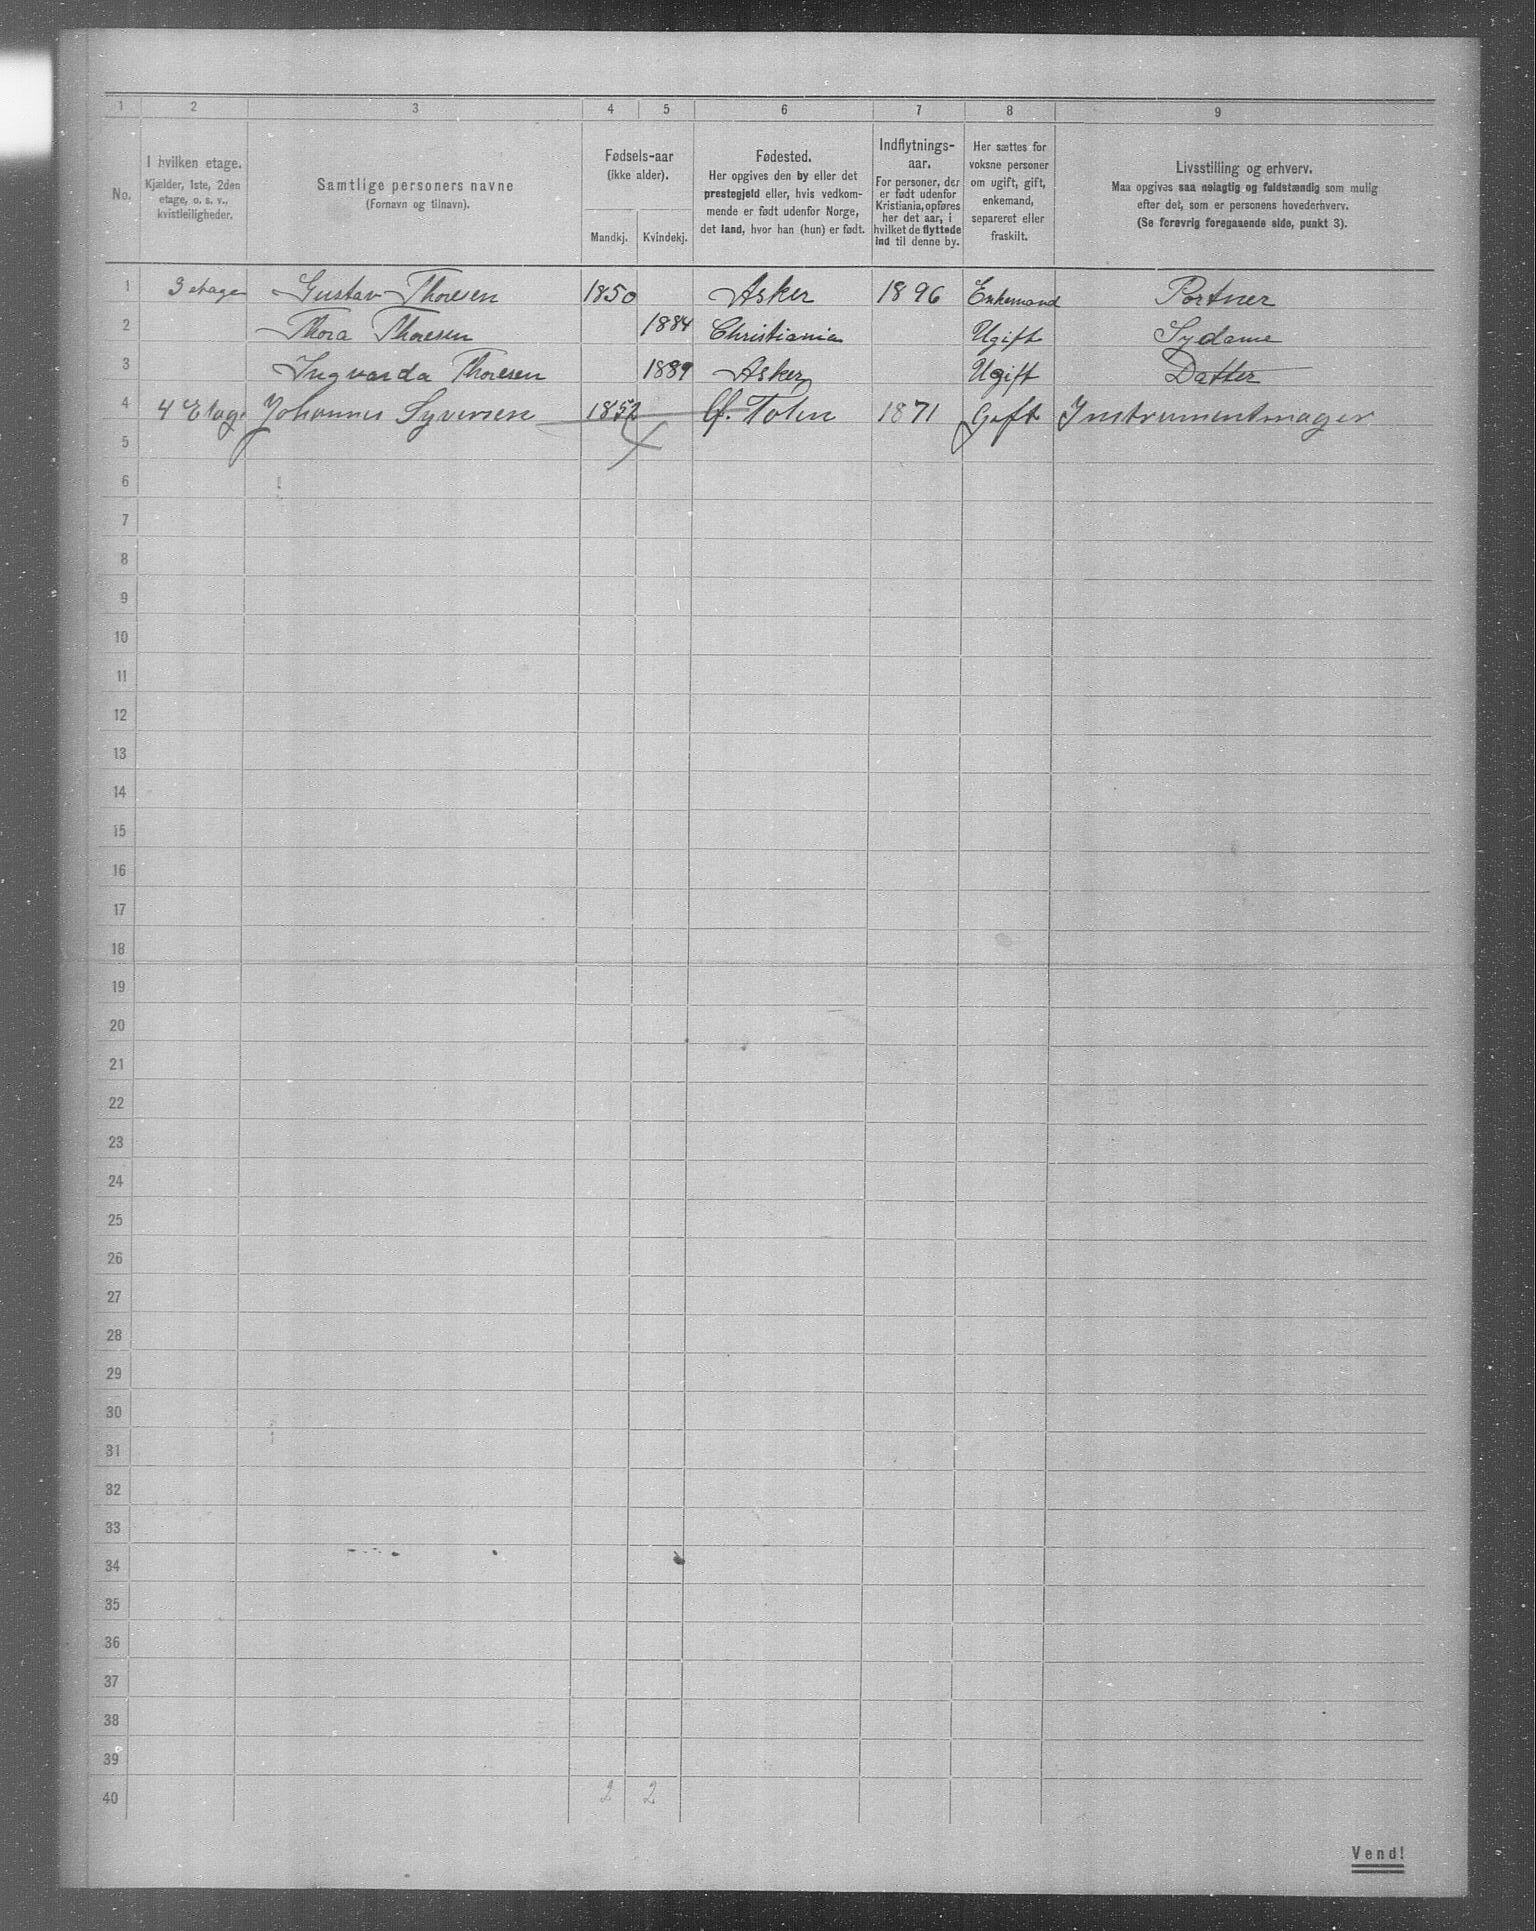 1 2 3 4 5 6 7 8 9
No.
I hvilken etage.
Kjælder, 1ste, 2den
etage, o. s. v.,
kvistleiligheder.
Samtlige personers navne
(Fornavn og tilnavn).
Fødsels-aar
(ikke alder).
Mandkj. Kvindekj.
Fødested.
Her opgives den by eller det
prestegjeld eller, hvis vedkom-
mende er født udenfor Norge,
det land, hvor han (hun) er født.
Indflytnings-
aar.
For personer, der
er født udenfor
Kristiania, opføres
her det aar, i
hvilket de flyttede
ind til denne by.
Her sættes for
voksne personer
om ugift, gift,
enkemand,
separeret eller
fraskilt.
Livsstilling og erhverv.
Maa opgives saa nøiagtig og fuldstændig som mulig
efter det, som er personens hovederhverv.
(Se forøvrig foregaaende side, punkt 3).
1 3 etage Gustav Thoresen 1850 Asker 1896 Enkemand Portner
2 Thora Thoresen 1884 Christiania Ugift Sydame
3 Ingvarda Thoresen 1889 Asker Ugift Datter
4 4 Etage Johannes Syversen 1852 Ø. Toten 1871 Gift Instrumentmager
5
6
7
8
9
10
11
12
13
14
15
16
17
18
19
20
21
22
23
24
25
26
27
28
29
30
31
32
33
34
35
36
37
38
39
40 2 2
Vend!